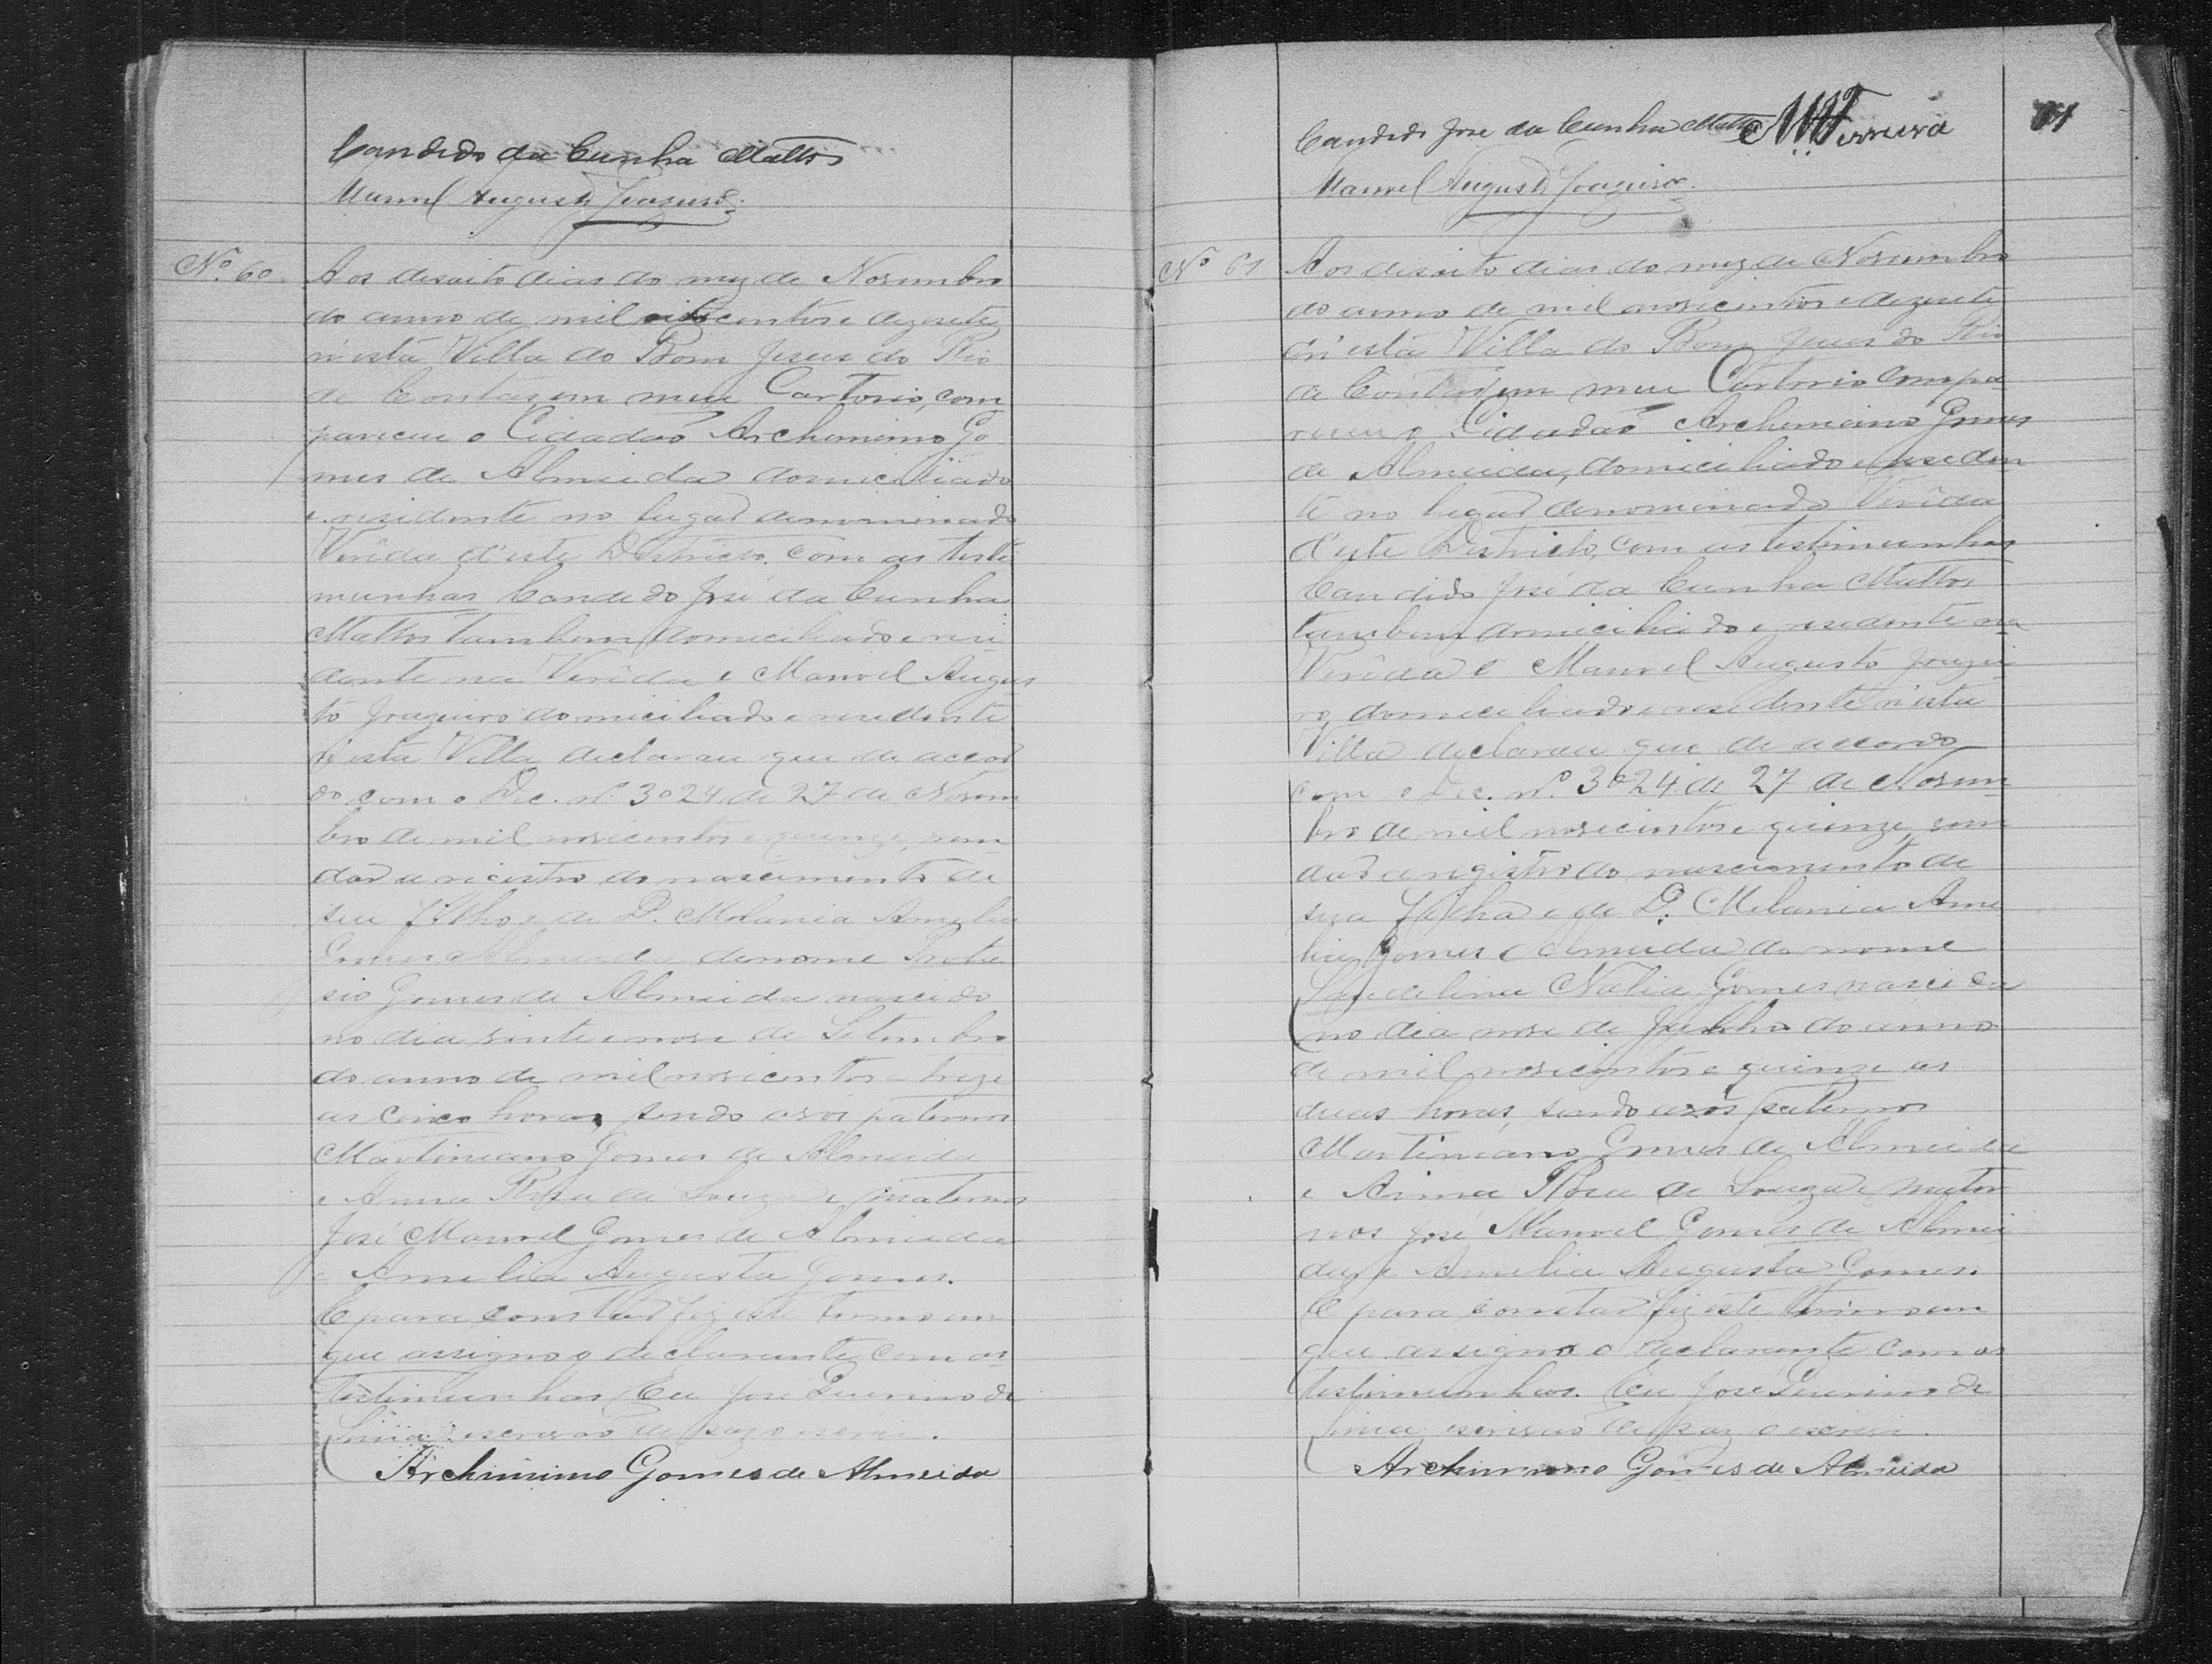 Candido da Cunha Mattos
Manoel Augusto Joazeiro
Nº 60
Aos desoito dias do mez de Novembro
do anno de mil centos e dezesete
n'esta Villa do Bom Jesus do Rio
de Contas em meu Cartorio, com
pareceu o Cidadão Archimimo Go
mes de Almeida domiciliado
e residente no lugar denominado
Verêda d'este Districto, com as teste
munhas Candido José da Cunha
Mattos tambem domiciliado e resi
dente na Verêda e Manoel Augus
to Joazeiro domiciliado e residente
n'esta Villa declarou que de accor
do com o Dec. nº 3024 de 27 de Novem
bro de mil novecentos e quinze, vem
dar a registro do nascimento de
seu filho e de D. Melania Amelia
Gomes Almeida de nome Prota
sio Gomes de Almeida nascido
no dia vinte e nove de Setembro
do anno de mil novecentos e treze
as cinco horas, sendo avós paternos
Martiniano Gomes de Almeida
e Anna Rosa de Souza e maternos
José Manoel Gomes de Almeida
e Amelia Augusta Gomes.
E para constar fiz este termo em
que assigno o declarante com as
testimunhas. Eu José Quirino de
Lima escrivão de paz o escrevi.
Archimimo Gomes de Almeida
Candido José da Cunha Mattos Ferreira
61
Manoel Augusto Joazeiro
Nº 61
Aos desoito dias do mez de Novembro
do anno de mil novecentos e dezesete
n'esta Villa do Bom Jesus do Rio
de Contas em meu Cartorio compa
receu o Cidadão Archimimo Gomes
de Almeida, domiciliado e residen
te no lugar denominado Verêda
d'este Districto, com as testimunhas
Candido José da Cunha Mattos
tambem domiciliado e residente na
Verêda e Manoel Augusto Joazei
ro, domiciliado e residente n'esta
Villa declarou que de accordo
com o Dec. nº 3024 de 27 de Novem
bro de mil novecentos e quinze, vem
dar a registro do nascimento de
sua filha e de D. Melania Ame
lia Gomes Almeida de nome
Laudelina Natia Gomes nascida
no dia nove de Junho do anno
de mil novecentos e quinze as
duas horas, sendo avós paternos
Martiniano Gomes de Almeida
e Anna Rosa de Souza e mater
nos José Manoel Gomes de Almei
da e Amelia Augusta Gomes.
E para constar fiz este termo em
que assigno o declarante com as
testimunhas. Eu José Quirino de
Lima escrivão de paz o escrevi.
Archimimo Gomes de Almeida